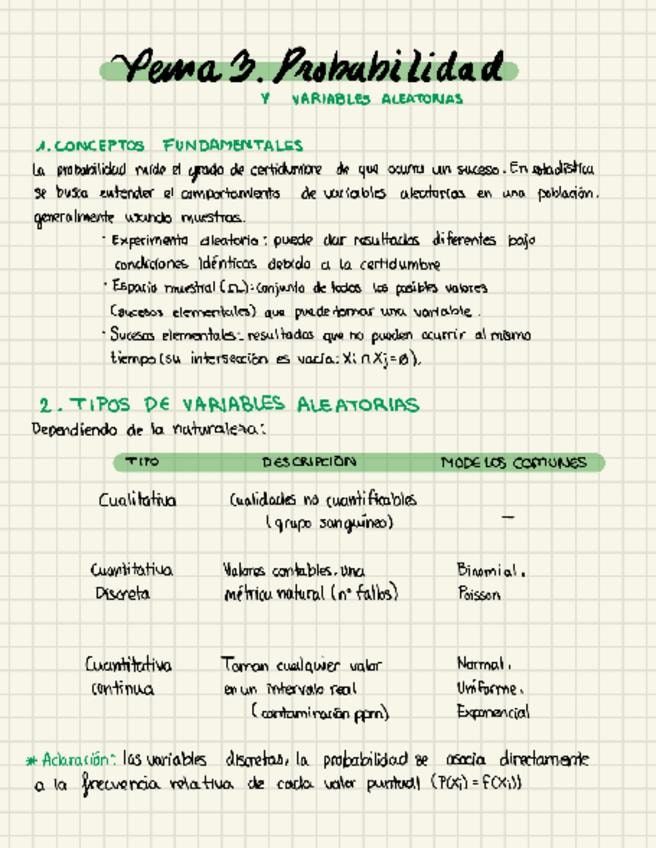 Tema 3. Probabilidad
Y VARIABLES ALEATORIAS
1. CONCEPTOS FUNDAMENTALES
La probabilidad mide el grado de certidumbre de que ocurra un suceso. En estadística
se busca entender el comportamiento de variables aleatorias en una población.
generalmente usando muestras.
· Experimento aleatorio: puede dar resultados diferentes bajo
condiciones idénticas debido a la certidumbre
· Espacio muestral (Ω): conjunto de todos los posibles valores
(sucesos elementales) que puede tomar una variable.
· Sucesos elementales: resultados que no pueden ocurrir al mismo
tiempo (su intersección es vacía: Xi ∩ Xj = ∅).
2. TIPOS DE VARIABLES ALEATORIAS
Dependiendo de la naturaleza:
TIPO DESCRIPCIÓN MODELOS COMUNES
Cualitativa Cualidades no cuantificables
(grupo sanguíneo) —
Cuantitativa Valores contables. una Binomial.
Discreta métrica natural (nº fallos) Poisson
Cuantitativa Toman cualquier valor Normal.
continua en un intervalo real Uniforme.
(contaminación ppm) Exponencial
* Aclaración: las variables discretas, la probabilidad se asocia directamente
a la frecuencia relativa de cada valor puntual (P(Xi) = f(Xi))